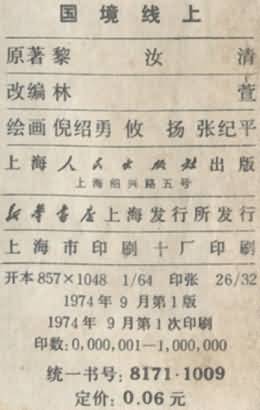 国境线上
原著 黎汝清
改编 林萱
绘画 倪绍勇 攸扬 张纪平
上海人民出版社出版
上海绍兴路五号
新华书店上海发行所发行
上海市印刷十厂印刷
开本 857×1048 1/64 印张 26/32
1974年9月第1版
1974年9月第1次印刷
印数:0,000,001—1,000,000
统一书号:8171·1009
定价:0.06元